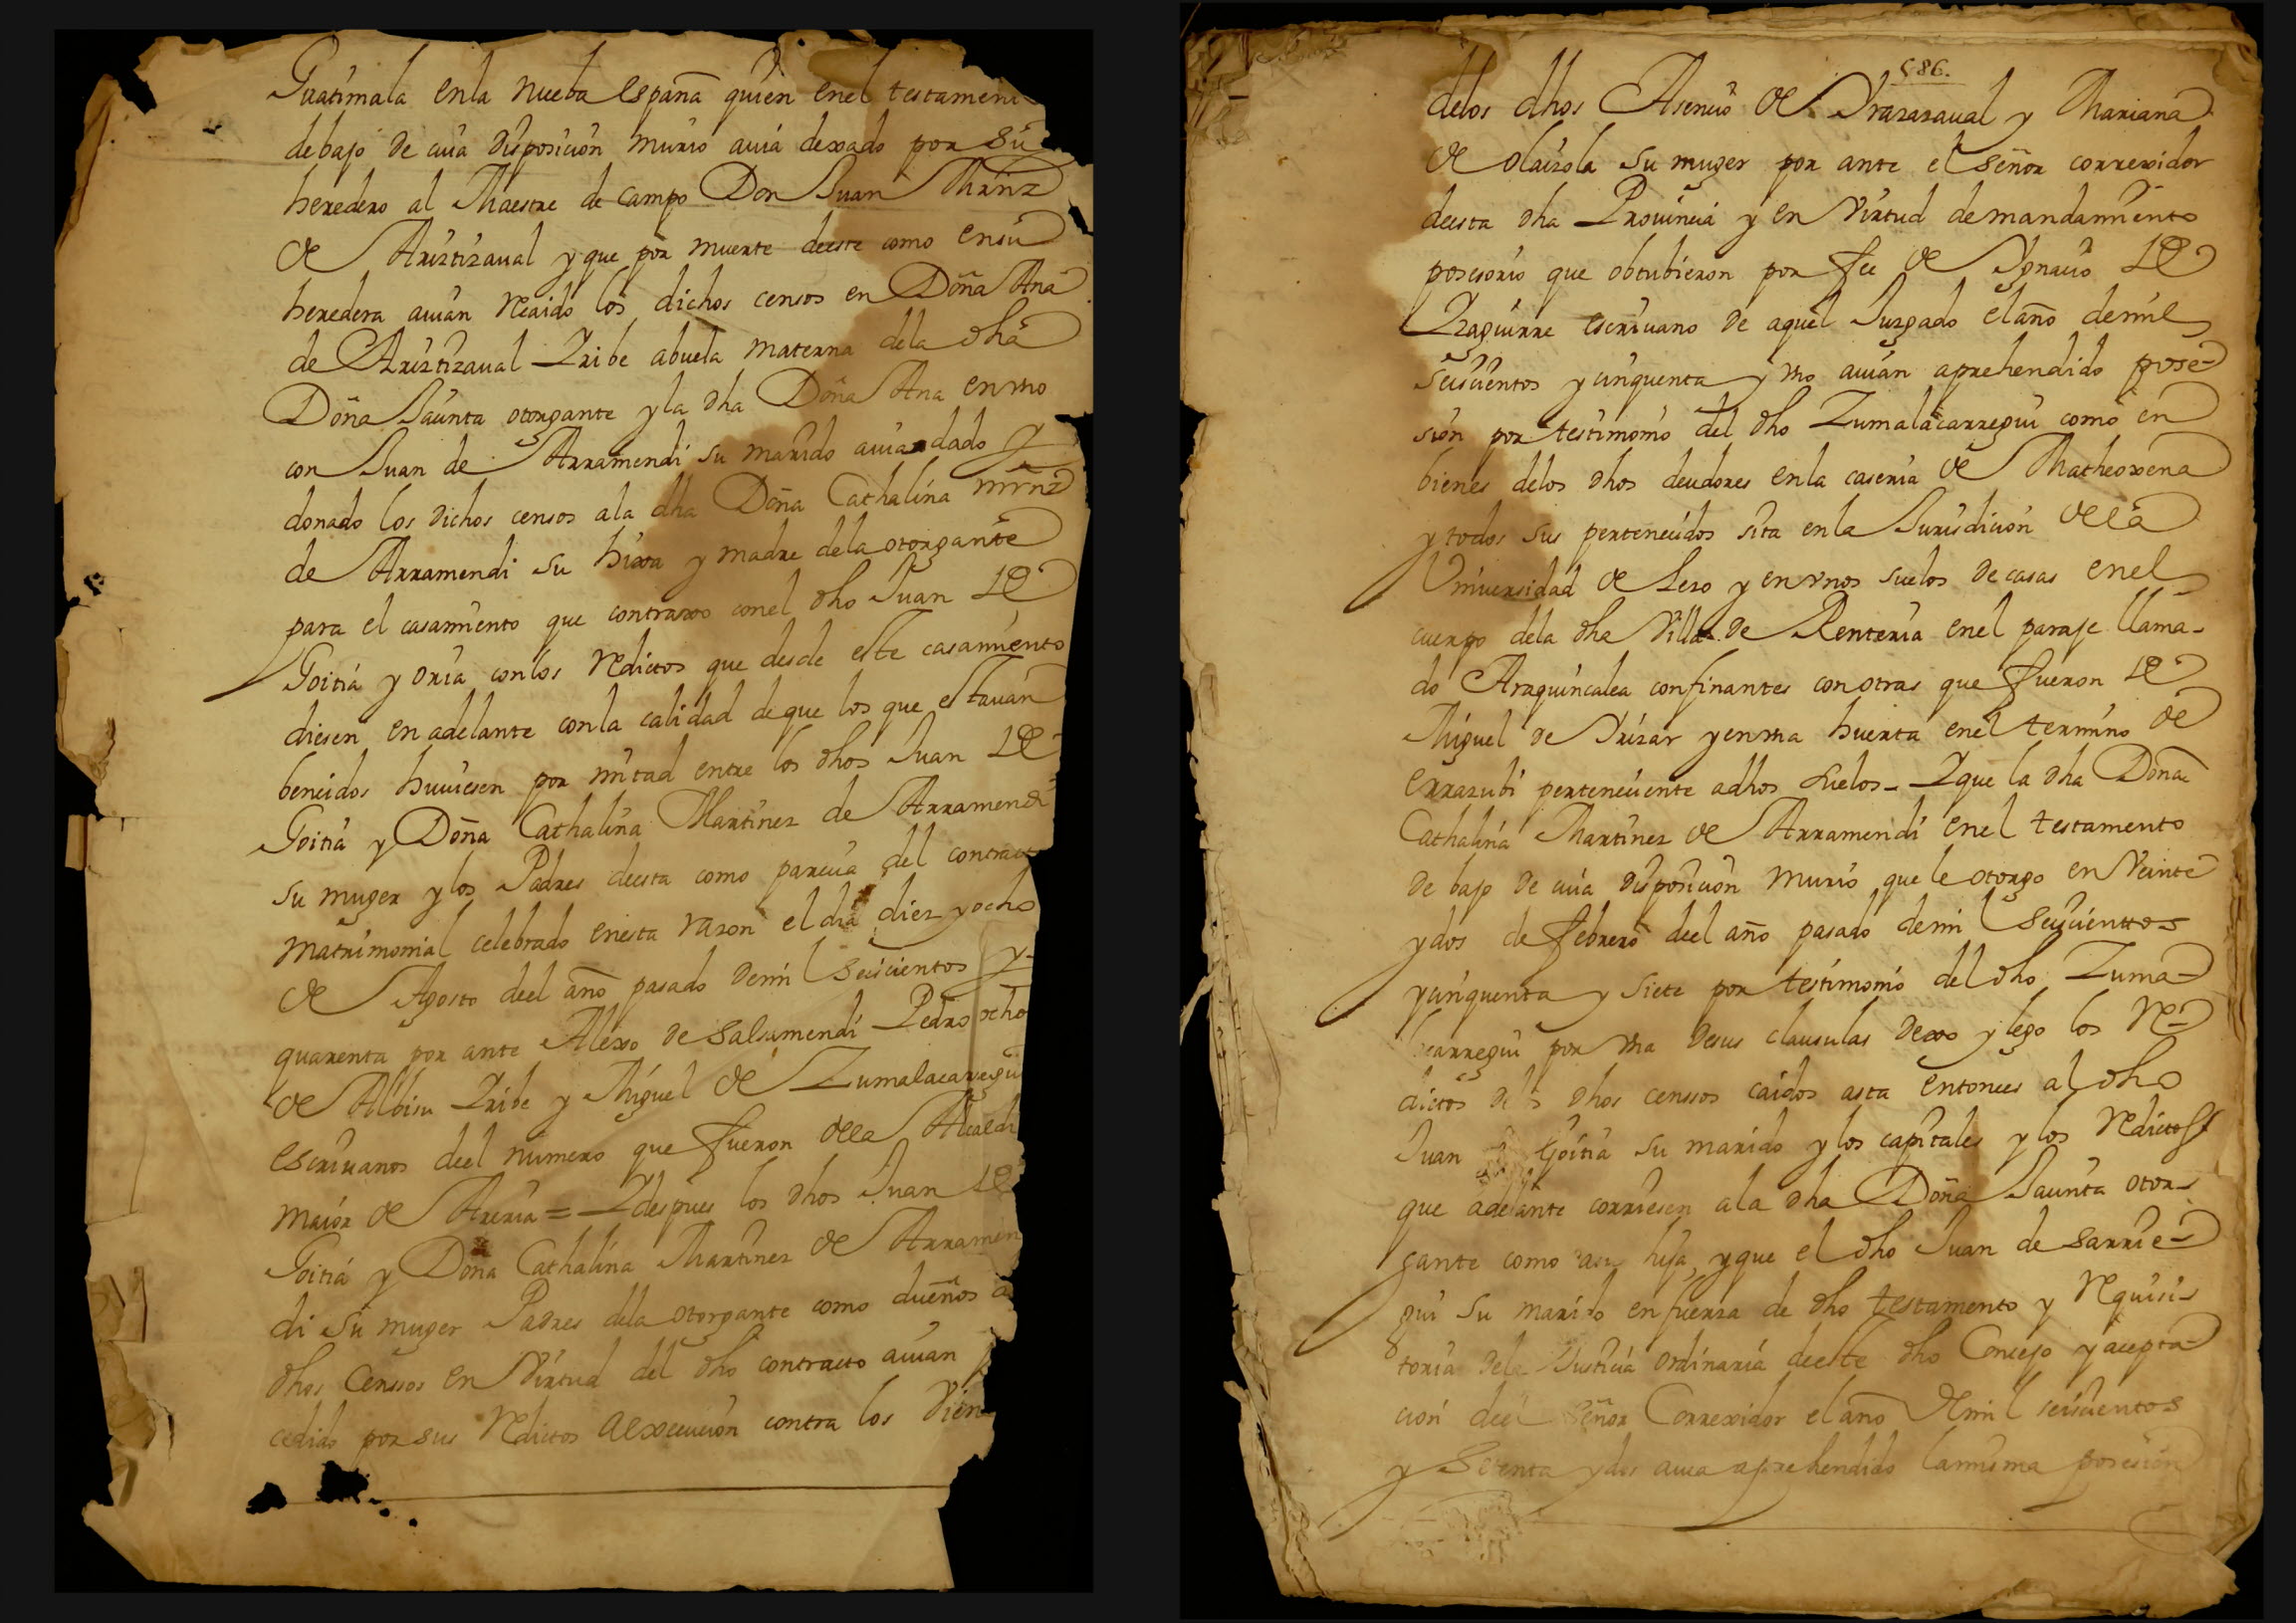 Guatimala enla nueba españa quien enel testamen
debajo de cuia disposicion murio auia dexado por su
heredero al Maestre de campo Don Juan Mrnz
de Ariztizaual y que por muerte deeste como ensu
heredera auian Recaido los dichos censos en Doña Ana
de Ariztizaual Yribe abuela materna dela dha
Doña Jacinta otorgante y la dha Doña Ana en vno
con Juan de Arramendi su marido auia dado y
donado los dichos censos ala dha Doña Cathalina mrnz
de Arramendi su hixa y madre dela otorgante
para el casamiento que contraxo conel dho Juan de
Goitia y oria conlos Reditos que desde este casamiento
diesen en adelante conla calidad de que los que estauan
bencidos huuiesen por mitad entre los dhos Juan de
Goitia y Doña Cathalina Martinez de Arramendi
su muger y los Padres deesta como parecia del contrac
matrimonial celebrado enesta razon el dia diez y ocho
de Agosto deel año pasado demil seiscientos y
quarenta por ante Alexo de Salsamendi Pedro ocho
de Albisu Yribe y Miguel de Zumalacarregui
escriuanos deel numero que fueron dela Alcaldi
maior de Areria = Y despues los dhos Juan de
Goitia y Doña Cathalina Martinez de Arramen
di su muger Padres dela otorgante como dueños d
dhos Censsos en Virtud del dho contracto auian
cedido por sus Reditos a execucion contra los vien
586.
delos dhos Asencio de Yrazazaual y Mariana
de olaizola su muger por ante el señor correxidor
deesta dha Prouincia y en Virtud de mandamiento
posesorio que obtubieron por fee de Ygnacio de
Yzaguirre escriuano de aquel Juzgado el año demil
seiscientos y cinquenta y vno auian aprehendido pose-
sion por testimonio del dho Zumalacarregui como en
bienes delos dhos deudores enla caseria de Matheoxena
y todos sus pertenecidos sita enla Jurisdicion dela
Vniuersidad de Lezo y en vnos suelos de casas enel
cuerpo dela dha Villa de Renteria enel paraje llama-
do Araguincalea confinantes con otras que fueron de
Miguel de Yrizar y en vna huerta enel termino de
errazubi perteneciente adhos suelos - Y que la dha Doña
Cathalina Martinez de Arramendi enel testamento
de bajo de cuia disposicion murio que le otorgo en Veinte
y dos de febrero deel año pasado demil seiscienttos
y cinquenta y siete por testimonio del dho Zuma-
carregui por vna desus clausulas dexo y lego los Re-
ditos de dhos censsos caidos asta entonces al dho
Juan Goitia su marido y los capitales y los Reditos
que adelante corriesen ala dha Doña Jacinta otor-
gante como asu hija, y que el dho Juan de Sarrie-
gui su marido en fuerza de dho testamento y Requisi-
toria dela Justicia ordinaria deeste dho Concejo y acepta-
cion deel Señor Correxidor el año demil seiscientos
y setenta y dos auia aprehendido la misma posesion